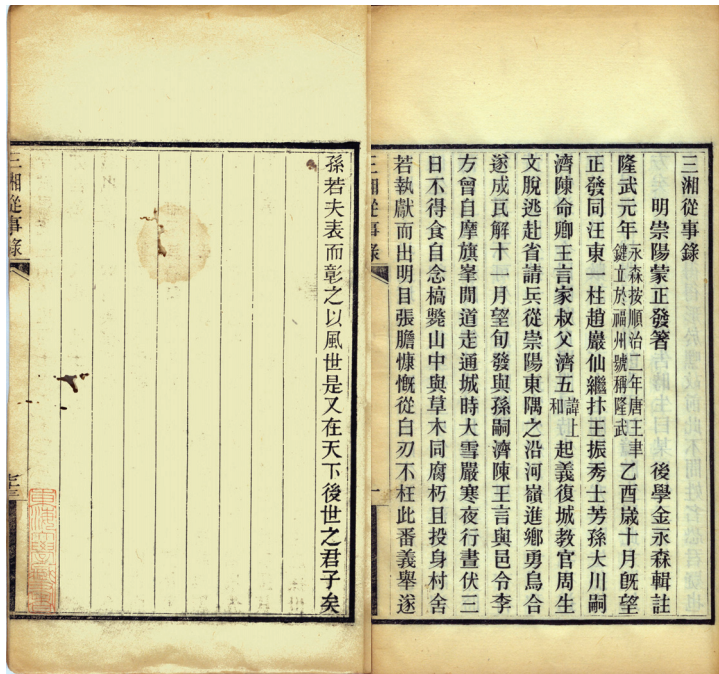 三湘從事錄
明崇陽蒙正發著　後學金永森輯註
隆武元年永森按順治二年唐王聿鍵立於福州號稱隆武乙酉歲十月旣望
正發同汪東一柱趙巖仙繼抃王振秀士芳孫大川嗣
濟陳命卿王言家叔父濟五諱上和起義復城教官周生
文脫逃赴省請兵從崇陽東隅之沿河嶺進鄉勇烏合
遂成瓦解十一月望旬發與孫嗣濟陳王言與邑令李
方曾自摩旗峯閒道走通城時大雪嚴寒夜行晝伏三
日不得食自念槁斃山中與草木同腐朽且投身村舍
若執獻而出明目張膽慷慨從白刃不枉此番義舉遂
三湘從事錄
一
孫若夫表而彰之以風世是又在天下後世之君子矣
三湘從事錄